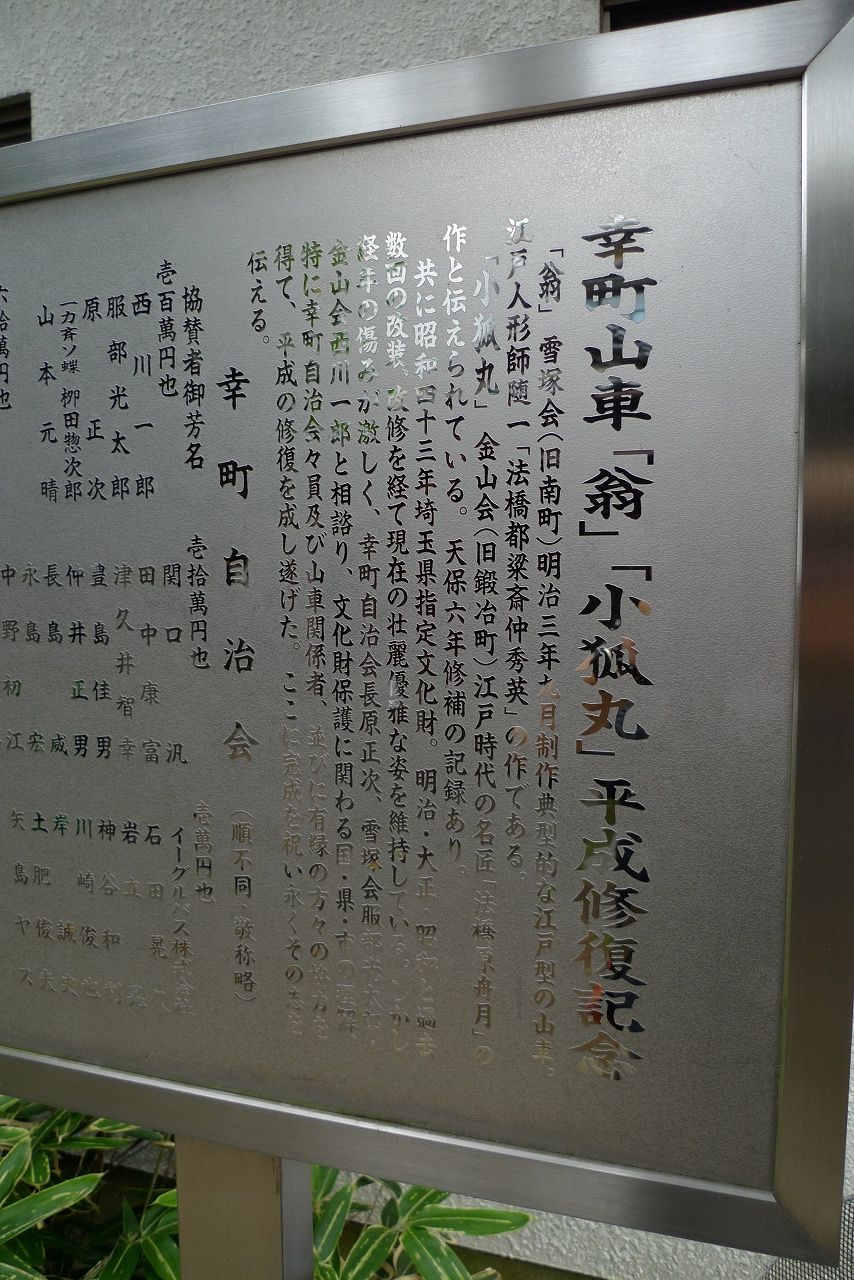 幸町山車「翁」「小狐丸」平成修復記念
「翁」 雪塚会(旧南町)明治三年九月制作典型的な江戸型の山車。
江戸人形師随一「法橋都梁斎仲秀英」の作である。
「小狐丸」 金山会(旧鍛冶町)江戸時代の名匠「法橋原舟月」の
作と伝えられている。天保六年修補の記録あり。
共に昭和四十三年埼玉県指定文化財。明治・大正・昭和と過去
数回の改装、改修を経て現在の壮麗優雅な姿を維持している。しかし
経年の傷みが激しく、幸町自治会長原正次、雪塚会服部光太郎・
金山会西川一郎と相諮り、文化財保護に関わる国・県・市の理解
特に幸町自治会々員及び山車関係者、並びに有縁の方々の協力を
得て、平成の修復を成し遂げた。ここに完成を祝い永くその志を
伝える。
幸町自治会
(順不同 敬称略)
協賛者御芳名
壱百萬円也
西川一郎
服部光太郎
原正次
一力斉ソ蝶 栁田惣次郎
山本元晴
六拾萬円也
壱拾萬円也
関口汎
田中康富
津久井智幸
豊島佳男
仲井正男
長島威
永島宏
中野初江
壱萬円也
イーグルバス株式会社
石田晃
岩立
神谷和
川崎俊
岸誠
土肥俊
矢島ヤス